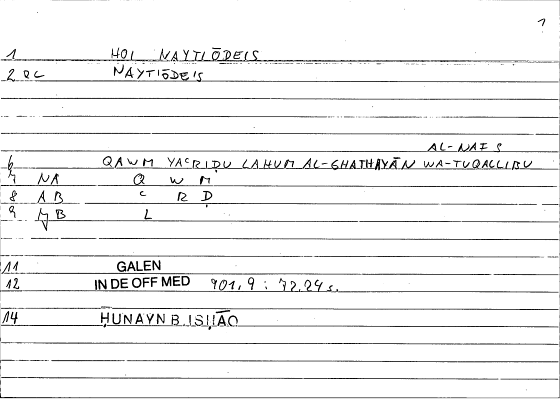 1
1 HOI NAYTIŌDEIS
2 QC NAYTIŌDEIS
AL-NAFS
6 QAWM YAʿRIḌU LAHUM AL-GHATHAYĀN WA-TUQALLIBU
7 NA Q W M
8 AB ʿ R Ḍ
9 B L
11 GALEN
12 IN DE OFF MED 901,9 : 72.24 s.
14 ḤUNAYN B. ISḤĀQ